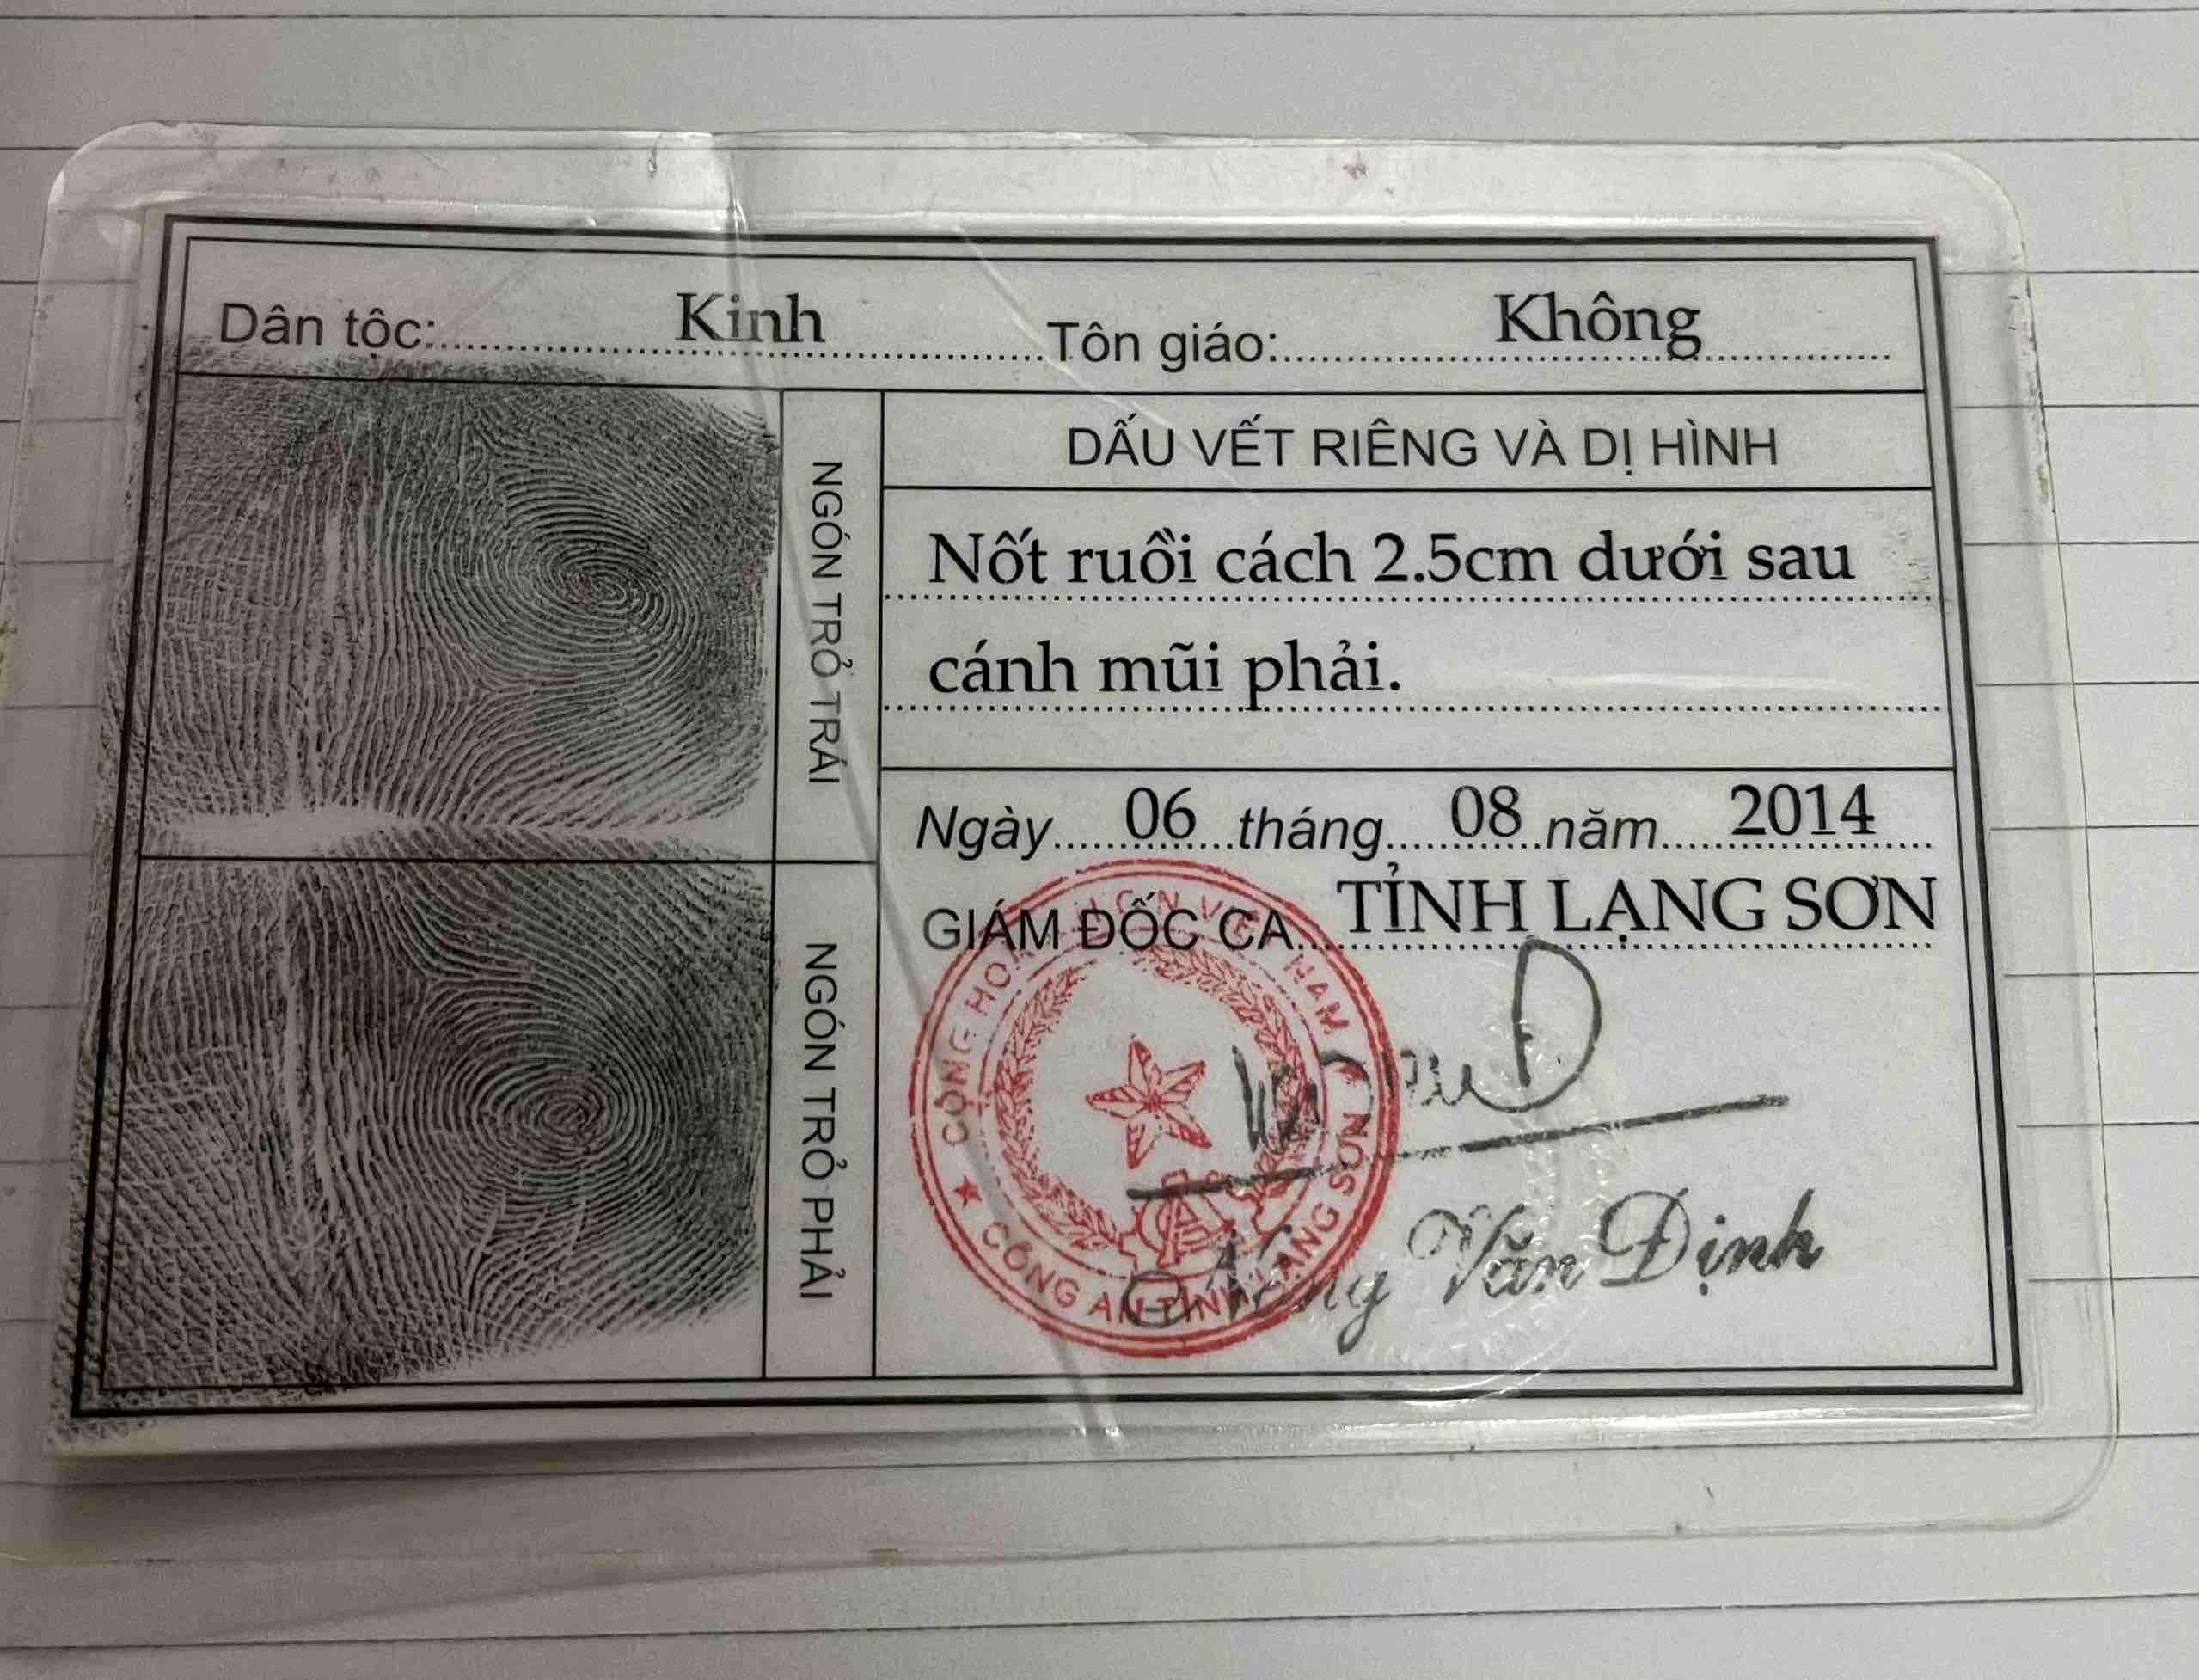 Dân tộc: Kinh Tôn giáo: Không
NGÓN TRỎ TRÁI
DẤU VẾT RIÊNG VÀ DỊ HÌNH
Nốt ruồi cách 2.5cm dưới sau
cánh mũi phải.
NGÓN TRỎ PHẢI
Ngày 06 tháng 08 năm 2014
GIÁM ĐỐC CA TỈNH LẠNG SƠN
CÔNG AN TỈNH LẠNG SƠN
Nông Văn Định